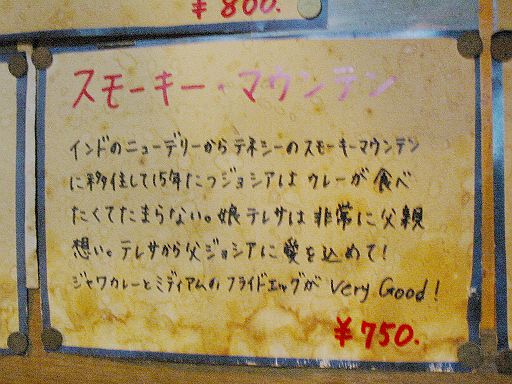 ¥800.
スモーキー・マウンテン
インドのニューデリーからテネシーのスモーキーマウンテン
に移住して15年たつジョシアはカレーが食べ
たくてたまらない。娘テレサは非常に父親
想い。テレサから父ジョシアに愛を込めて!
ジャワカレーとミディアムのフライドエッグが Very Good!
¥750.